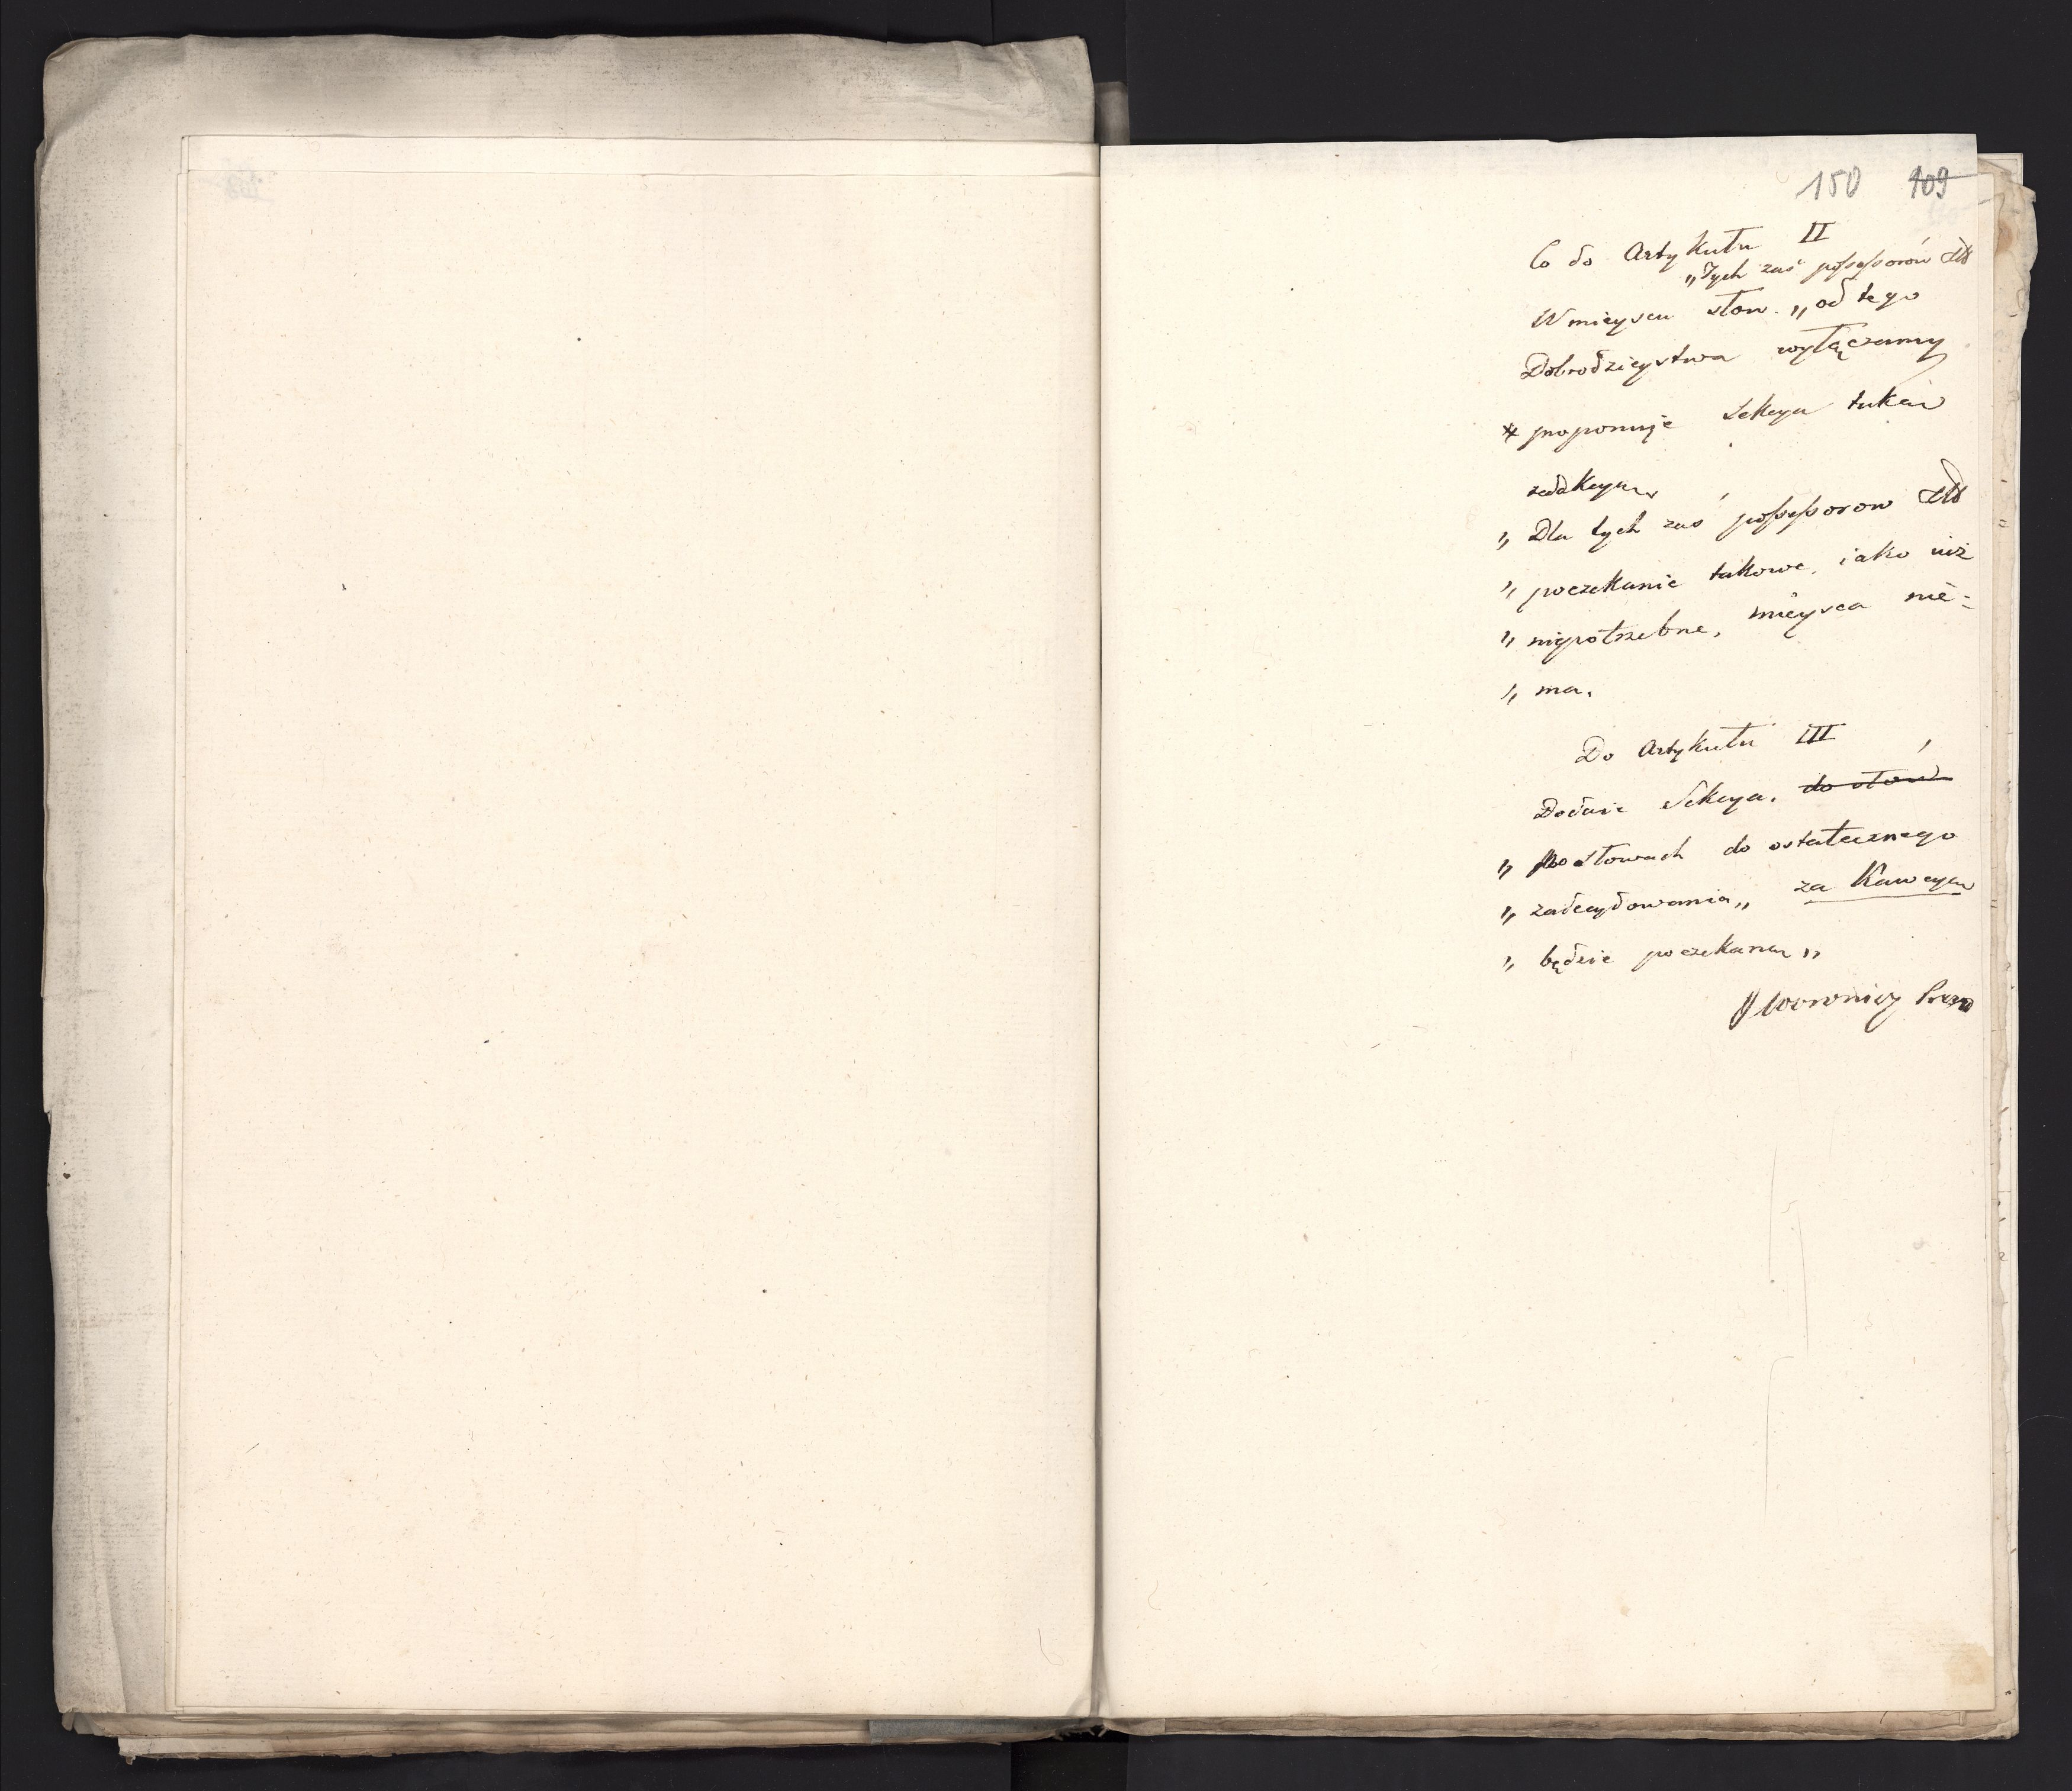 150 109
Co do Artykułu II
„Tych zaś possessorów etc
W mieyscu słow. „od tego
Dobrodzieystwa wyłączamy
proponuje Sekcya takąw
redakcyą
„ Dla tych zaś possessorow etc
„ poczekanie takowe, iako iuż
„ niepotrzebne, mieysca nie-
„ ma.
Do Artykułu III
Dodaie Sekcya. do słow
„ Po słowach do ostatecznego
„ zadecydowania„ za Kawcyą
„ będzie poczekana „
Woronicz Prez